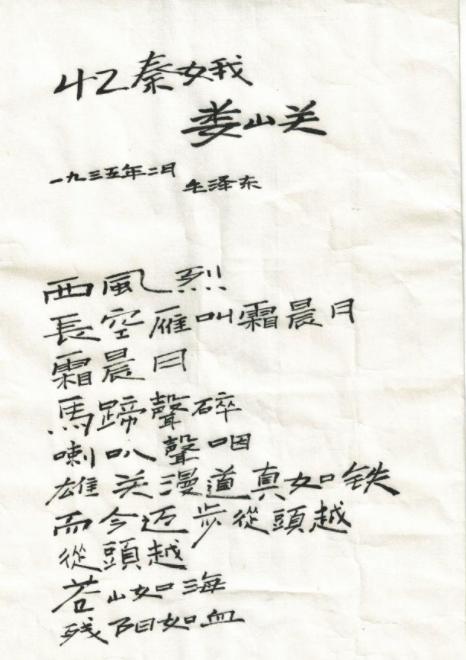 忆秦娥
娄山关
一九三五年二月
毛泽东
西風烈
長空雁叫霜晨月
霜晨月
馬蹄聲碎
喇叭聲咽
雄关漫道真如铁
而今迈步從頭越
從頭越
苍山如海
残阳如血